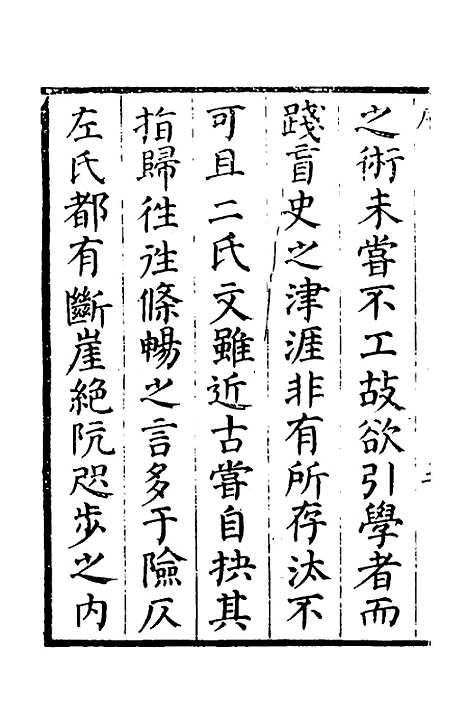 之術未嘗不工故欲引學者而
踐盲史之津涯非有所存汰不
可且二氏文雖近古嘗自抉其
指歸徃徃條暢之言多于險仄
左氏都有斷崖絶阬咫步之内